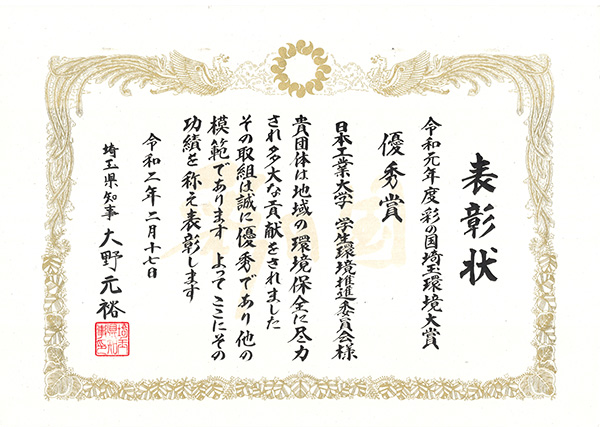 表彰状
令和元年度彩の国埼玉環境大賞
優秀賞
日本工業大学 学生環境推進委員会様
貴団体は地域の環境保全に尽力
され多大な貢献をされました
その取組は誠に優秀であり他の
模範であります よってここにその
功績を称え表彰します
令和二年二月十七日
埼玉県知事 大野元裕